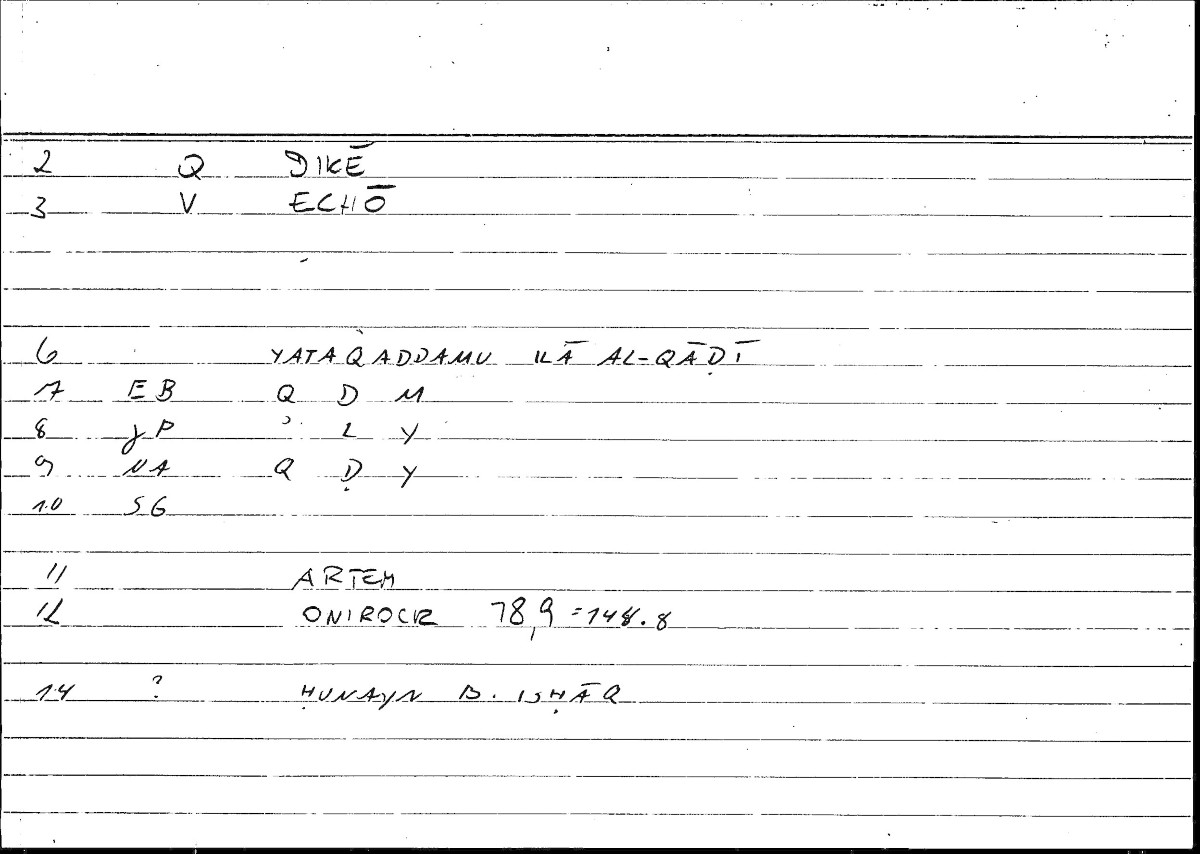 2 Q DIKĒ
3 V ECHŌ
6 YATAQADDAMU ILĀ AL-QĀḌĪ
7 EB Q D M
8 JP ʾ L Y
9 NA Q Ḍ Y
10 SG
11 ARTEM
12 ONIROCR 78,9 = 148.8
14 ? ḤUNAYN B. ISḤĀQ